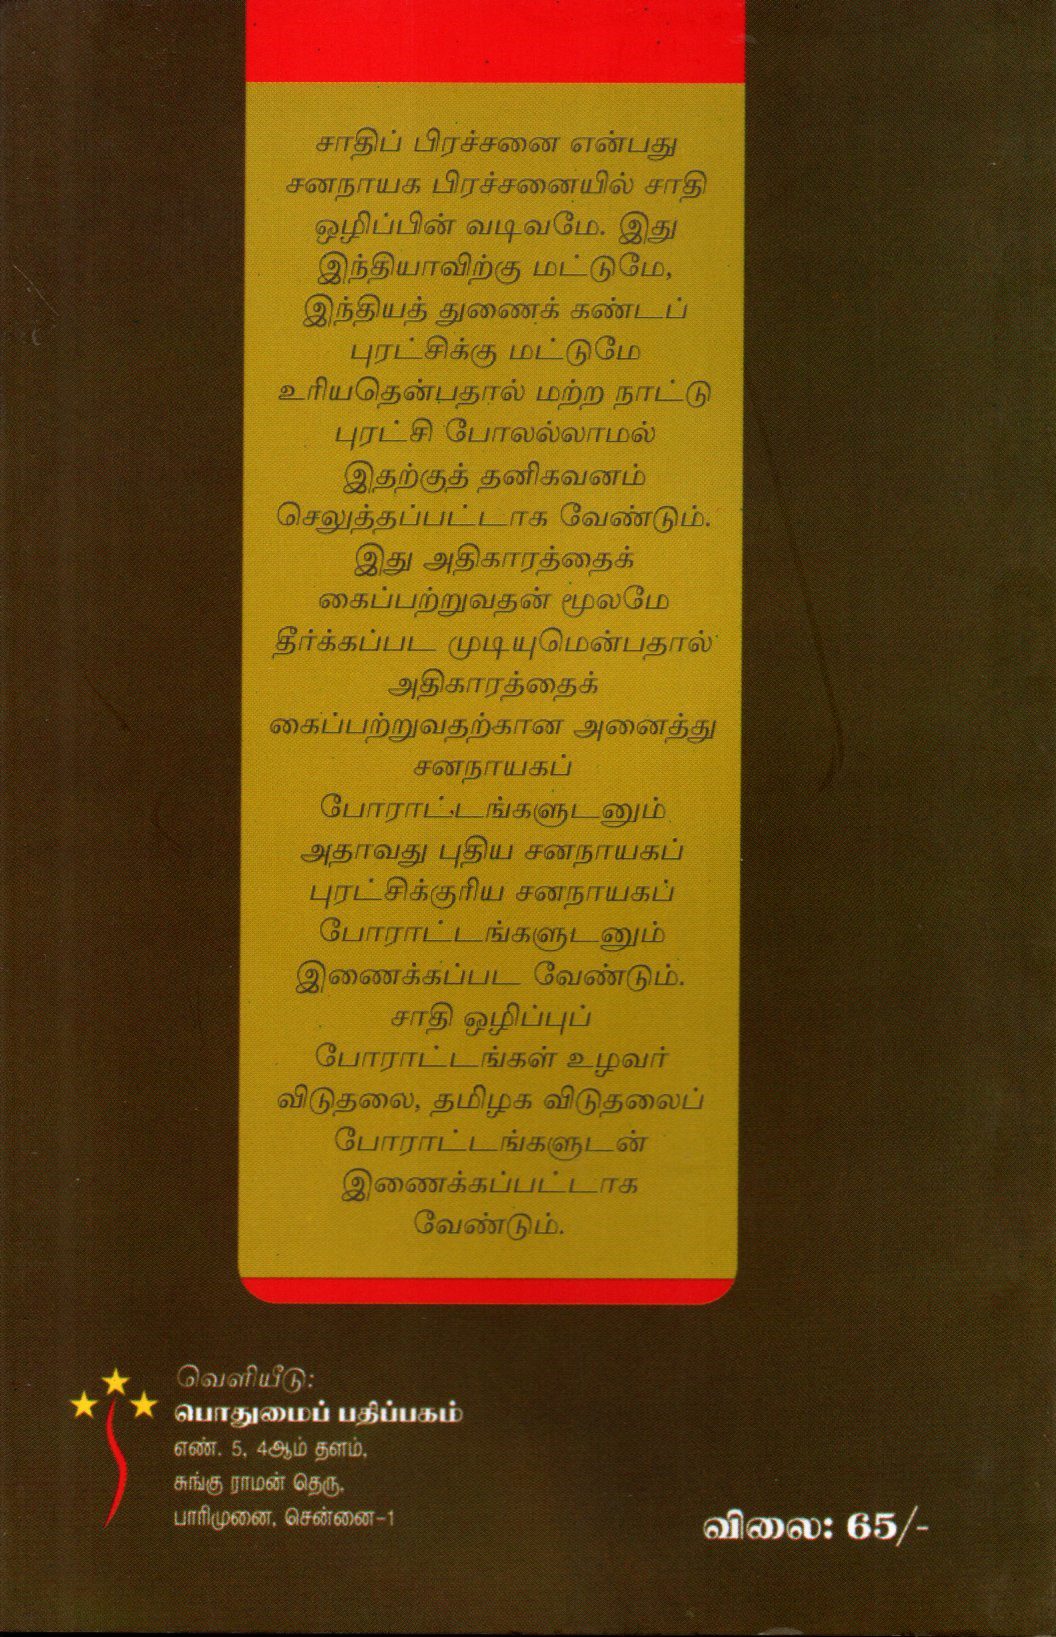 சாதிப் பிரச்சனை என்பது
சனநாயக பிரச்சனையில் சாதி
ஒழிப்பின் வடிவமே. இது
இந்தியாவிற்கு மட்டுமே,
இந்தியத் துணைக் கண்டப்
புரட்சிக்கு மட்டுமே
உரியதென்பதால் மற்ற நாட்டு
புரட்சி போலல்லாமல்
இதற்குத் தனிகவனம்
செலுத்தப்பட்டாக வேண்டும்.
இது அதிகாரத்தைக்
கைப்பற்றுவதன் மூலமே
தீர்க்கப்பட முடியுமென்பதால்
அதிகாரத்தைக்
கைப்பற்றுவதற்கான அனைத்து
சனநாயகப்
போராட்டங்களுடனும்
அதாவது புதிய சனநாயகப்
புரட்சிக்குரிய சனநாயகப்
போராட்டங்களுடனும்
இணைக்கப்பட வேண்டும்.
சாதி ஒழிப்புப்
போராட்டங்கள் உழவர்
விடுதலை, தமிழக விடுதலைப்
போராட்டங்களுடன்
இணைக்கப்பட்டாக
வேண்டும்.
வெளியீடு:
பொதுமைப் பதிப்பகம்
எண். 5, 4ஆம் தளம்,
சுங்கு ராமன் தெரு,
பாரிமுனை, சென்னை-1
விலை: 65/-